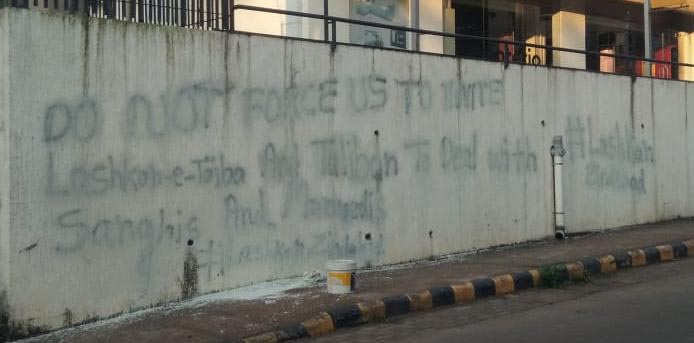 DO NOT FORCE US TO INVITE
Lashkar-e-Toiba And Taliban To Deal with
Sanghis And Manvedis
#Lashkar Zindabad
#Lashkar
Zindabad